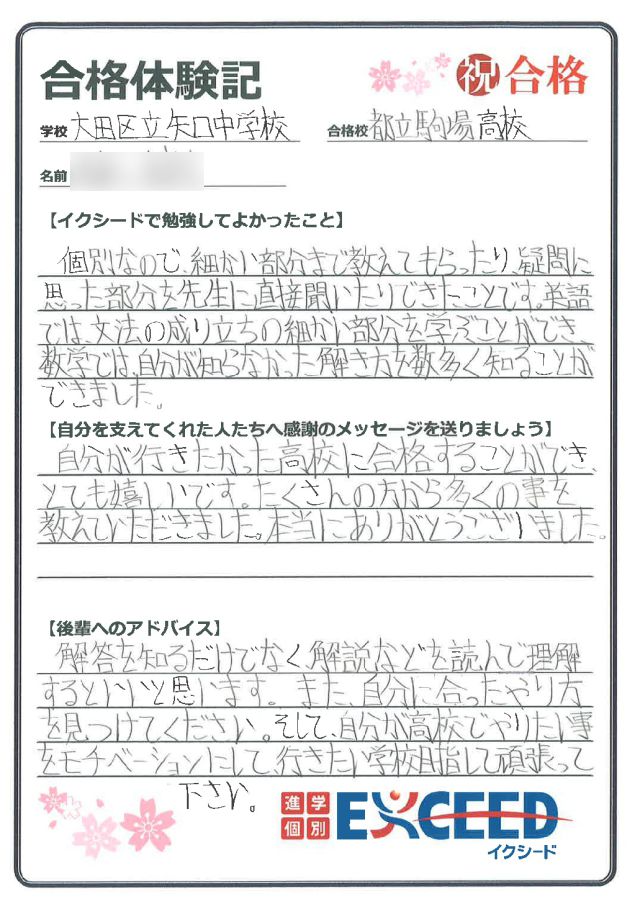 合格体験記
祝 合格
学校 大田区立矢口中学校
合格校 都立駒場高校
名前
【イクシードで勉強してよかったこと】
個別なので、細かい部分まで教えてもらったり、疑問に
思った部分を先生に直接聞いたりできたことです。英語
では文法の成り立ちの細かい部分を学ぶことができ、
数学では、自分が知らなかった解き方を数多く知ることが
できました。
【自分を支えてくれた人たちへ感謝のメッセージを送りましょう】
自分が行きたかった高校に合格することができ、
とても嬉しいです。たくさんの方から多くの事を
教えていただきました。本当にありがとうございました。
【後輩へのアドバイス】
解答を知るだけでなく解説などを読んで理解
するといいと思います。また、自分に合ったやり方
を見つけてください。そして、自分が高校でやりたい事
をモチベーションにして、行きたい学校目指して頑張って
下さい。
進学
個別
EXCEED
イクシード